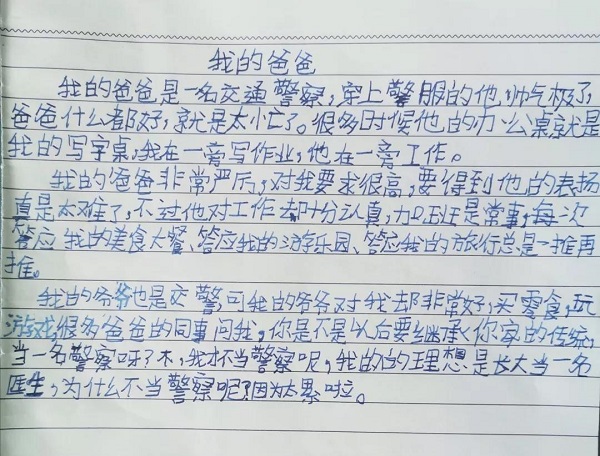 我的爸爸
我的爸爸是一名交通警察,穿上警服的他帅气极了,
爸爸什么都好,就是太忙了。很多时候他的办公桌就是
我的写字桌,我在一旁写作业,他在一旁工作。
我的爸爸非常严厉,对我要求很高,要得到他的表扬
真是太难了,不过他对工作却十分认真,加班是常事,每一次
答应我的美食大餐、答应我的游乐园、答应我的旅行总是一推再
推。
我的爷爷也是交警,可我的爷爷对我却非常好,买零食,玩
游戏,很多爸爸的同事问我,你是不是以后要继承你家的传统,
当一名警察呀?不,我才不当警察呢,我的的理想是长大当一名
医生,为什么不当警察呢?因为太累啦。